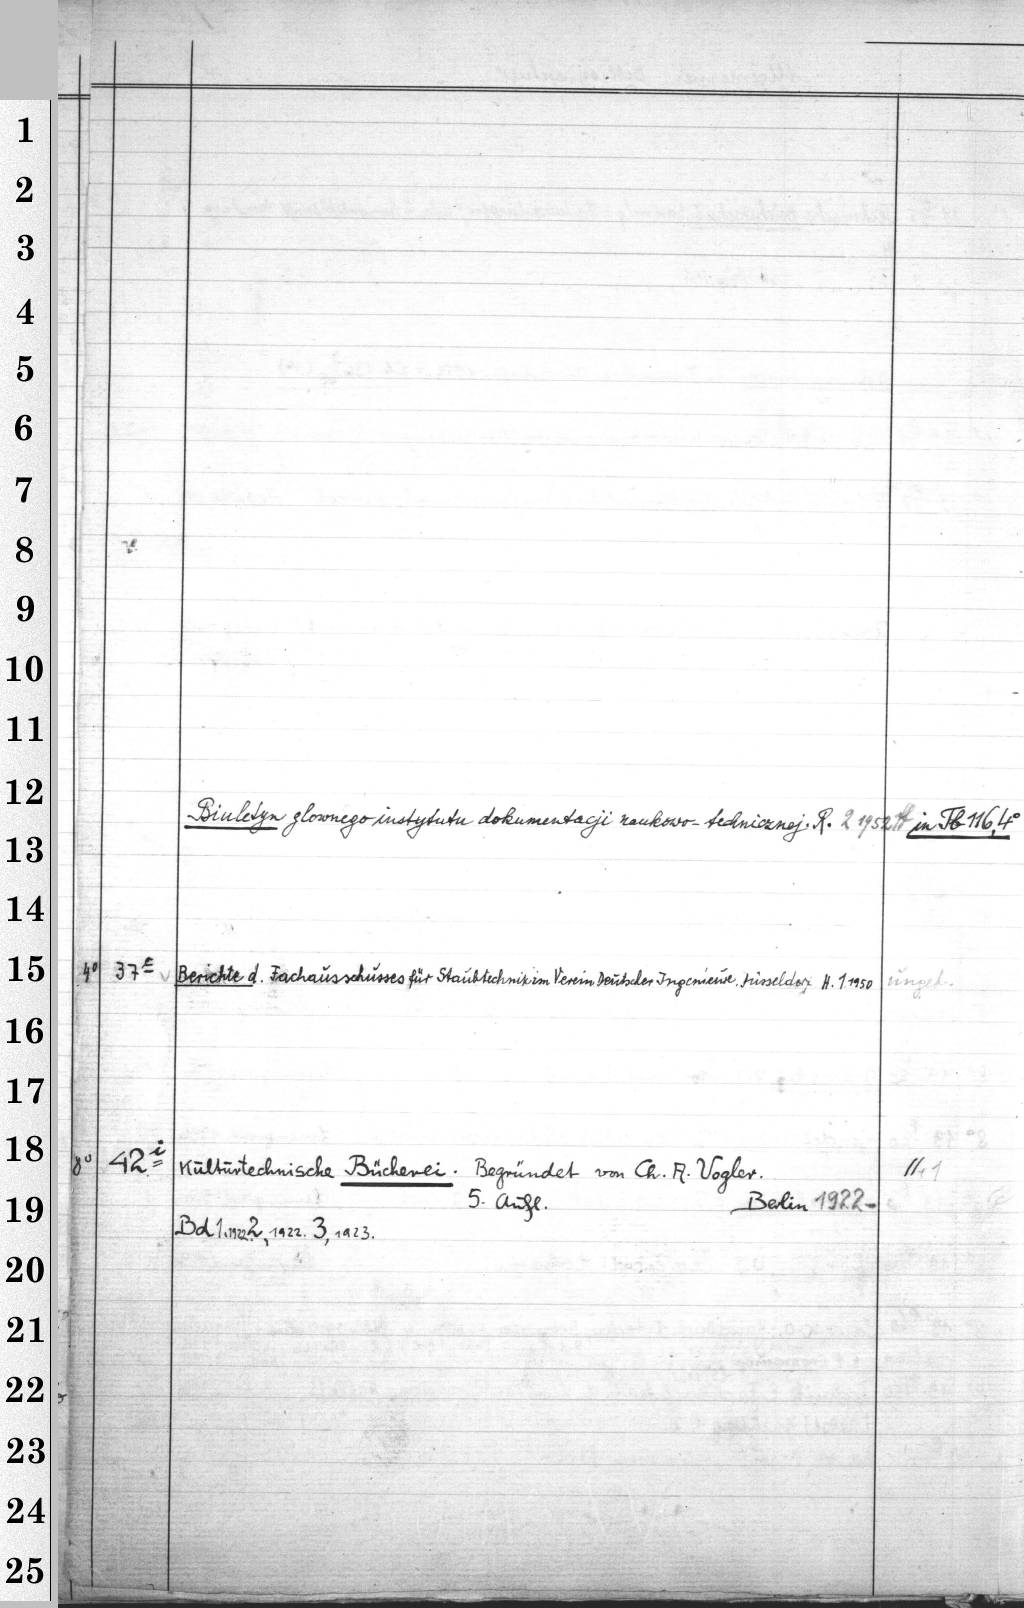 1
2
3
4
5
6
7
8
9
10
11
12
Biuletyn glownego instytutu dokumentacji naukowo-technicznej. R. 2 1952 ff in Tb 116, 4°
13
14
15 4° 37e Berichte d. Fachausschusses für Staubtechnik im Verein Deutscher Ingenieure. Düsseldorf H. 1 1950 unget.
16
17
18 8° 42i Kulturtechnische Bücherei. Begründet von Ch. A. Vogler.
19 5. Aufl. Berlin 1922-
Bd 1. 1922. 2, 1922. 3, 1923.
20
21
22
23
24
25